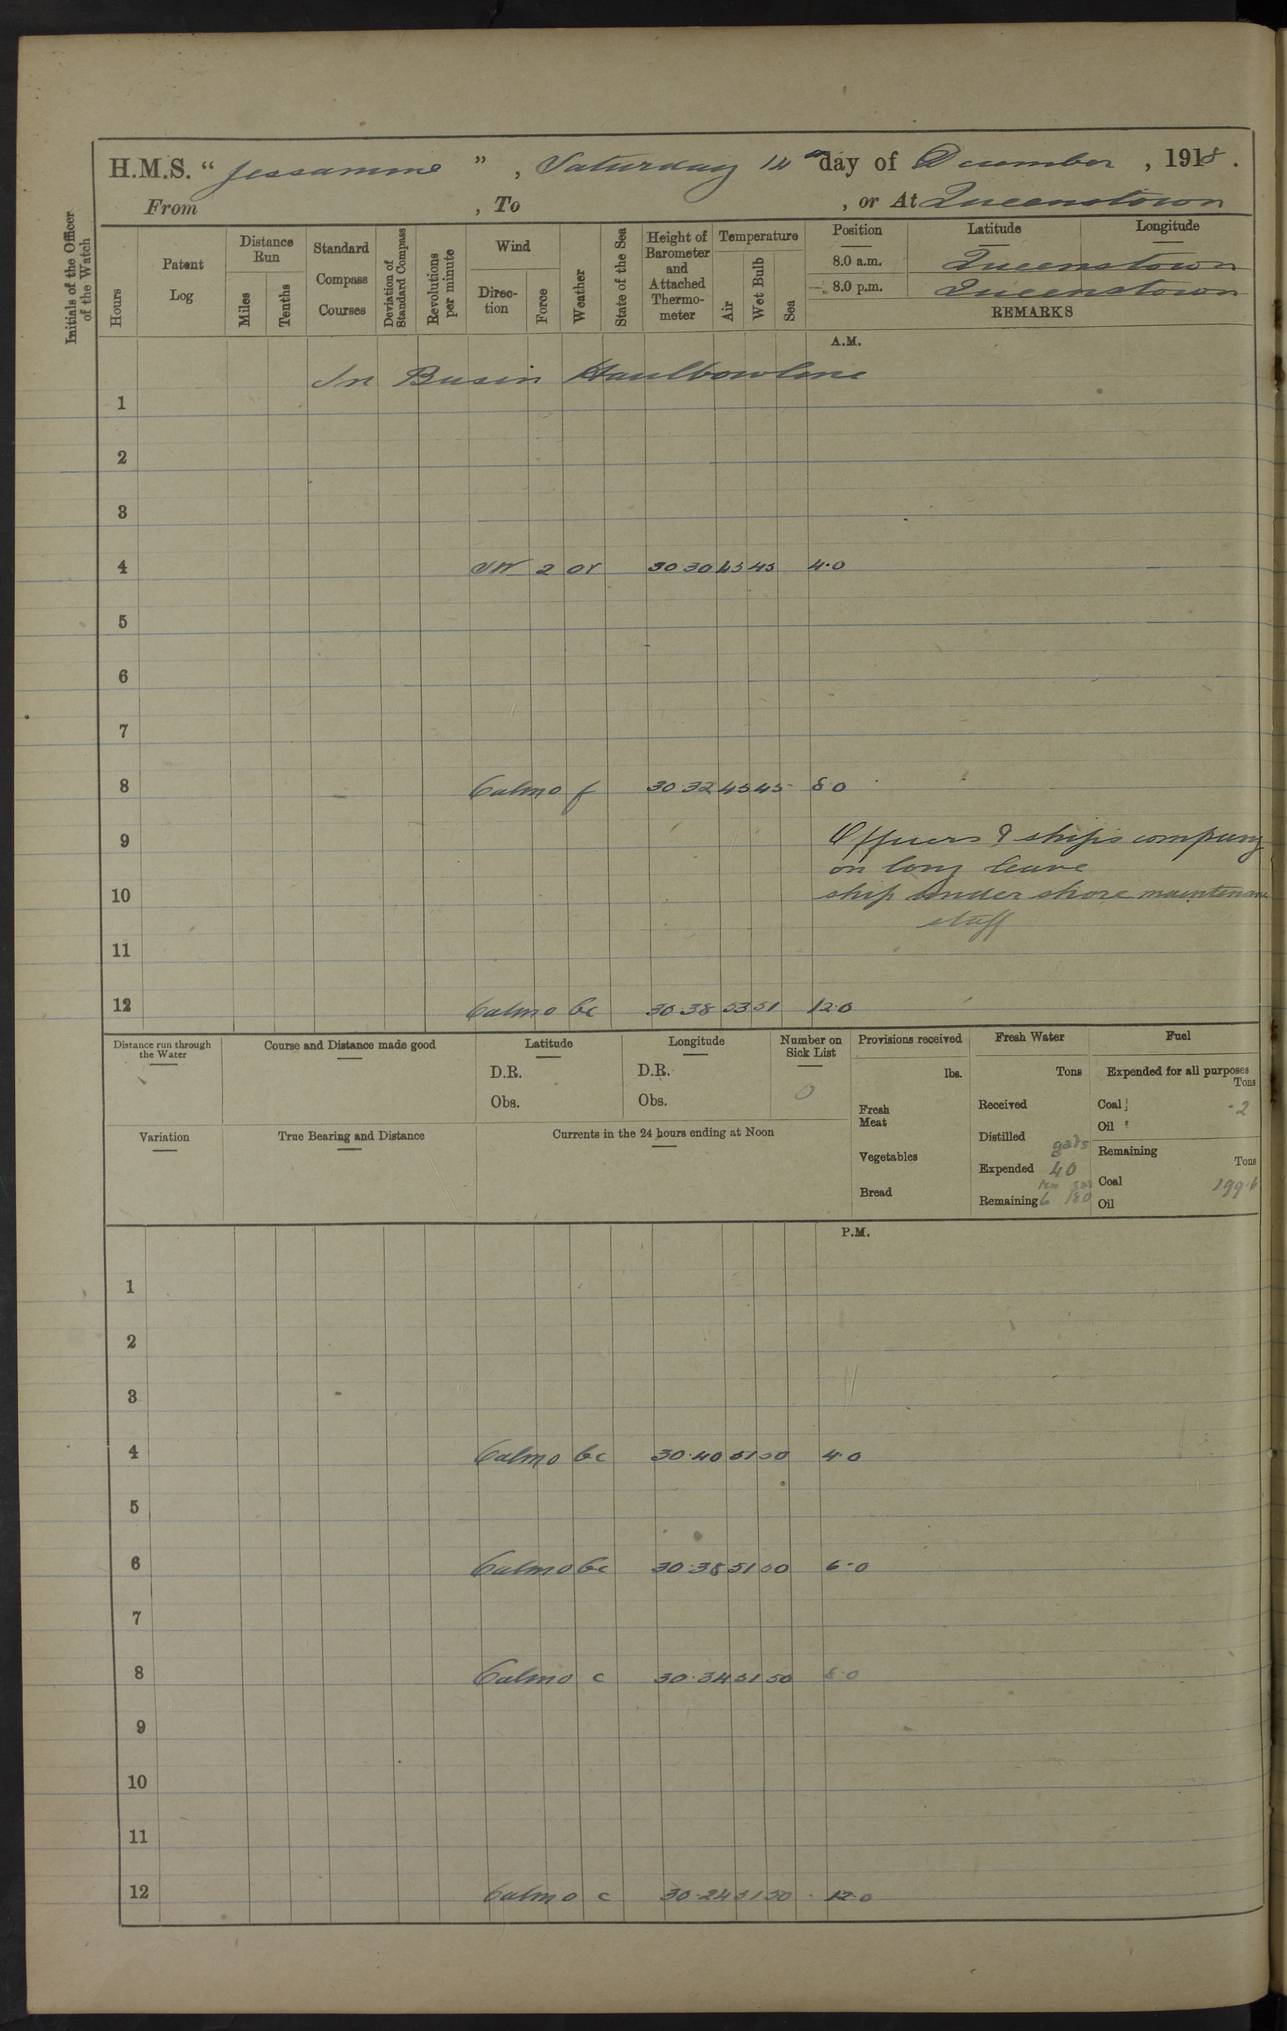 H.M.S. “ Jessamine ” , Saturday 14th day of December , 1918 .
From , To , or At Queenstown
Initials of the Officer of the Watch
Hours
Patent Log
Distance Run
Miles
Tenths
Standard Compass Courses
Deviation of Standard Compass
Revolutions per minute
Wind
Direc- tion
Force
Weather
State of the Sea
Height of Barometer and Attached Thermo- meter
Temperature
Air
Wet Bulb
Sea
Position Latitude Longitude
8.0 a.m. Queenstown
8.0 p.m. Queenstown
REMARKS
A.M.
In Basin Haulbowline
1
2
3
4 SW 2 or 30.30 45 45 4.0
5
6
7
8 Calm 0 f 30.32 45 45 8.0
9 Officers & ships company
on long leave
10 ship under shore maintenance
staff
11
12 Calm 0 bc 30.38 53 51 12.0
Distance run through the Water
Course and Distance made good
Latitude
D.R.
Obs.
Longitude
D.R.
Obs.
Number on Sick List
0
Provisions received
lbs.
Fresh Meat
Vegetables
Bread
Fresh Water
Tons
Received
Distilled
galls
Expended 40
Remaining 6 180
Fuel
Expended for all purposes
Tons
Coal .2
Oil
Remaining
Tons
Coal 199.6
Oil
Variation
True Bearing and Distance
Currents in the 24 hours ending at Noon
P.M.
1
2
3
4 Calm 0 bc 30.40 51 50 4.0
5
6 Calm 0 bc 30.38 51 50 6.0
7
8 Calm 0 c 30.34 51 50 8.0
9
10
11
12 Calm 0 c 30.24 51 50 12.0